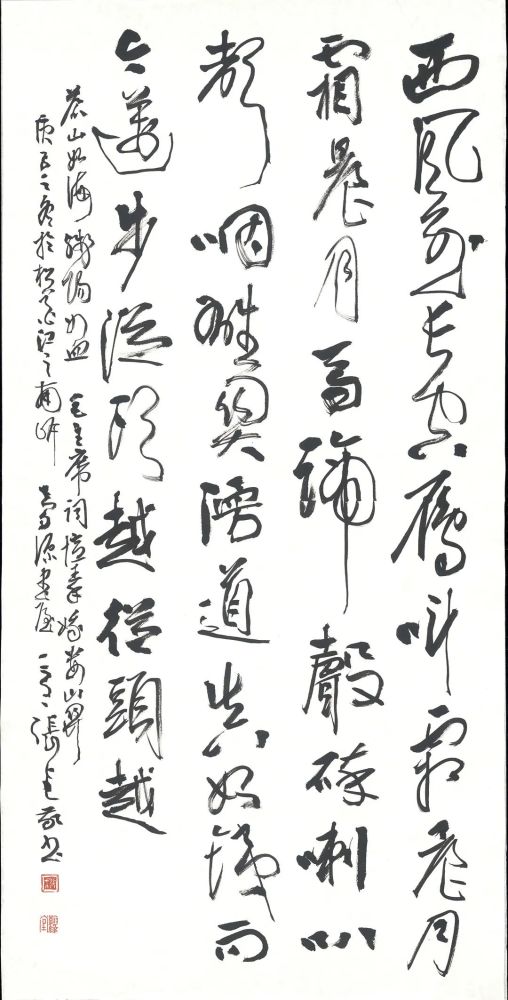 西風烈長空雁叫霜晨月
霜晨月馬蹄聲碎喇叭
聲咽雄關漫道真如鐵而
今邁步從頭越從頭越
蒼山如海殘陽如血 毛主席詞憶秦娥婁山關
之於松花江之南岸源書屋張書